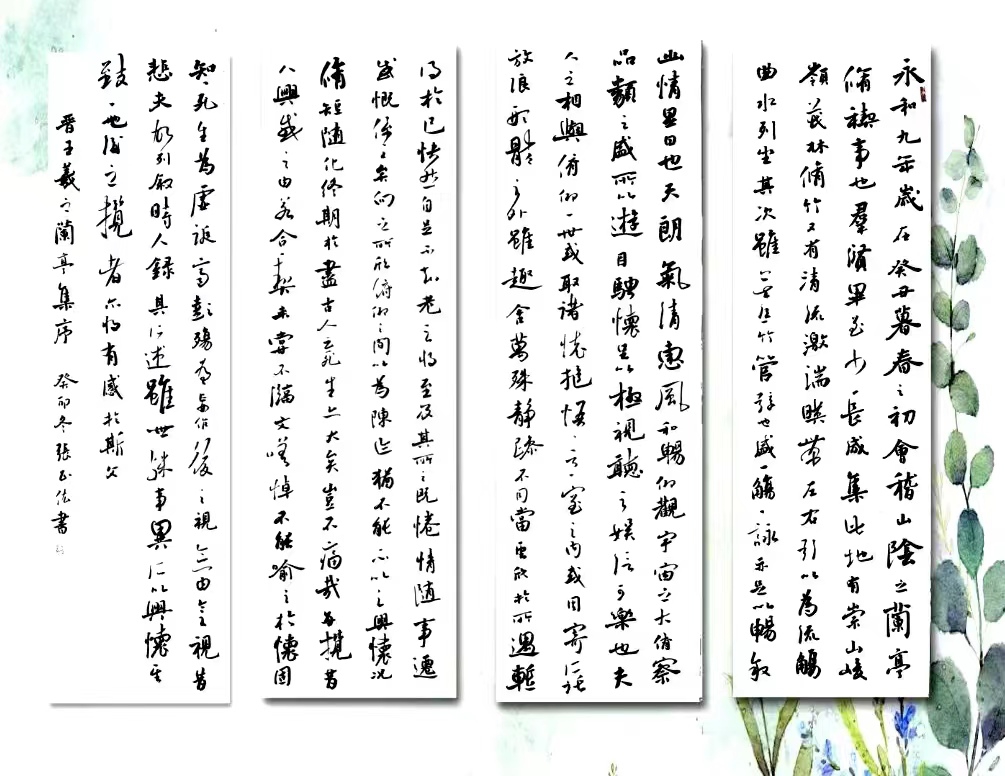 永和九年歲在癸丑暮春之初會稽山陰之蘭亭
脩禊事也羣賢畢至少長咸集此地有崇山峻
嶺茂林脩竹又有清流激湍暎帶左右引以為流觴
曲水列坐其次雖無絲竹管弦之盛一觴一詠亦足以暢敘
幽情是日也天朗氣清惠風和暢仰觀宇宙之大俯察
品類之盛所以遊目騁懷足以極視聽之娛信可樂也夫
人之相與俯仰一世或取諸懷抱悟言一室之內或因寄所託
放浪形骸之外雖趣舍萬殊靜躁不同當其欣於所遇暫
得於己怏然自足不知老之將至及其所之既惓情隨事遷
感慨係之矣向之所欣俯仰之間以為陳迹猶不能不以之興懷況
脩短隨化終期於盡古人云死生亦大矣豈不痛哉每攬昔
人興感之由若合一契未嘗不臨文嗟悼不能喻之於懷固
知一死生為虛誕齊彭殤為妄作後之視今亦由今之視昔
悲夫故列敘時人錄其所述雖世殊事異所以興懷其
致一也後之攬者亦將有感於斯文
晉王羲之蘭亭集序 癸卯冬張書